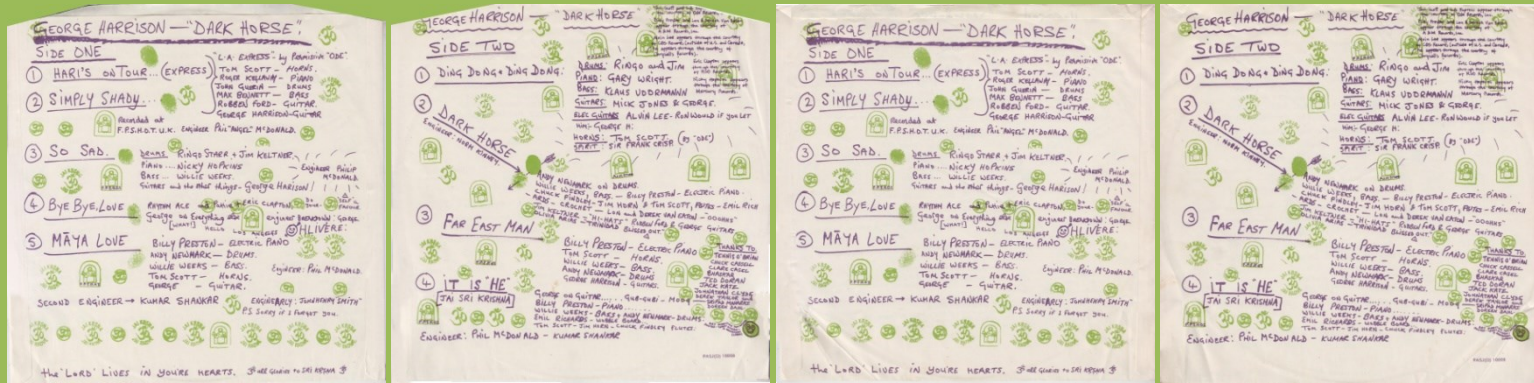 GEORGE HARRISON — "DARK HORSE".
SIDE ONE
① HARI'S ON TOUR... (EXPRESS)
"L.A. EXPRESS" - by Permission "ODE".
TOM SCOTT - HORNS.
ROGER KELLAWAY - PIANO
JOHN GUERIN - DRUMS
MAX BENNETT - BASS
ROBBEN FORD - GUITAR.
GEORGE HARRISON - GUITAR
② SIMPLY SHADY...
Recorded at
F.P.S.H.O.T. U.K. Engineer Phil "ANGEL" McDONALD.
③ SO SAD.
DRUMS RINGO STARR + JIM KELTNER.
PIANO... NICKY HOPKINS
BASS .. WILLIE WEEKS.
Guitars and the other things - George HARISON
Engineer PHILIP McDONALD.
④ BYE BYE, LOVE
RHYTHM ACE
ERIC CLAPTON
George on Everything else
[WANT]
HELLO LOS ANGELES
OHLIVERE:
⑤ MĀYA LOVE
BILLY PRESTON - ELECTRIC PIANO
ANDY NEWMARK - DRUMS.
WILLIE WEEKS - BASS.
TOM SCOTT - HORNS.
GEORGE - GUITAR.
Engineer: PHIL McDONALD.
SECOND ENGINEER → KUMAR SHANKAR
P.S. SORRY IF I FORGOT YOU.
the 'LORD' LIVES IN YOURE HEARTS. ॐ all GLORIES to SRI KRSNA ॐ
GEORGE HARRISON — "DARK HORSE
SIDE TWO
① DING DONG • DING DONG:
DRUMS: RINGO and JIM
PIANO: GARY WRIGHT.
BASS: KLAUS VOORMANN
GUITARS: MICK JONES & GEORGE.
ELEC GUITARS ALVIN LEE - RON WOOD if you LET
HIM - GEORGE H:
HORNS: TOM SCOTT (by "ODE")
SPIRIT: SIR FRANK CRISP
② DARK HORSE
ENGINEER: NORM KINNEY
ANDY NEWMARK on DRUMS.
WILLIE WEEKS, BASS - BILLY PRESTON - ELECTRIC PIANO.
CHUCK FINDLEY - JIM HORN & TOM SCOTT, FLUTES - EMIL RICH
ARDS - CROCHET - LON and DEREK VAN EATON - "OOOHHS"
JIM KELTNER - "HI-HAT" - ROBBEN FORD & GEORGE GUITARS
③ FAR EAST MAN
BILLY PRESTON - ELECTRIC PIANO
TOM SCOTT - HORNS.
WILLIE WEEKS - BASS.
ANDY NEWMARK - DRUMS
GEORGE HARRISON - GUITARS.
THANKS TO
④ IT IS "HE"
[JAI SRI KRISHNA]
GEORGE on Guitar.... GUB-GUBI - MOOG
BILLY PRESTON - PIANO
WILLIE WEEKS - BASS + ANDY NEWMARK - DRUMS
EMIL RICHARDS - WOBBLE BOARD
TOM SCOTT - JIM HORN - CHUCK FINDLEY FLUTES.
ENGINEER: PHIL McDONALD - KUMAR SHANKAR
GEORGE HARRISON — "DARK HORSE".
SIDE ONE
① HARI'S ON TOUR... (EXPRESS)
"L.A. EXPRESS" - by Permission "ODE".
TOM SCOTT - HORNS.
ROGER KELLAWAY - PIANO
JOHN GUERIN - DRUMS
MAX BENNETT - BASS
ROBBEN FORD - GUITAR.
GEORGE HARRISON - GUITAR
② SIMPLY SHADY...
Recorded at
F.P.S.H.O.T. U.K. Engineer Phil "ANGEL" McDONALD.
③ SO SAD.
DRUMS RINGO STARR + JIM KELTNER.
PIANO... NICKY HOPKINS
BASS .. WILLIE WEEKS.
Guitars and the other things - George HARISON
Engineer PHILIP McDONALD.
④ BYE BYE, LOVE
RHYTHM ACE
ERIC CLAPTON
George on Everything else
[WANT]
HELLO LOS ANGELES
OHLIVERE:
⑤ MĀYA LOVE
BILLY PRESTON - ELECTRIC PIANO
ANDY NEWMARK - DRUMS.
WILLIE WEEKS - BASS.
TOM SCOTT - HORNS.
GEORGE - GUITAR.
Engineer: PHIL McDONALD.
SECOND ENGINEER → KUMAR SHANKAR
P.S. SORRY IF I FORGOT YOU.
the 'LORD' LIVES IN YOURE HEARTS. ॐ all GLORIES to SRI KRSNA ॐ
GEORGE HARRISON — "DARK HORSE
SIDE TWO
① DING DONG • DING DONG:
DRUMS: RINGO and JIM
PIANO: GARY WRIGHT.
BASS: KLAUS VOORMANN
GUITARS: MICK JONES & GEORGE.
ELEC GUITARS ALVIN LEE - RON WOOD if you LET
HIM - GEORGE H:
HORNS: TOM SCOTT (by "ODE")
SPIRIT: SIR FRANK CRISP
② DARK HORSE
ENGINEER: NORM KINNEY
ANDY NEWMARK on DRUMS.
WILLIE WEEKS, BASS - BILLY PRESTON - ELECTRIC PIANO.
CHUCK FINDLEY - JIM HORN & TOM SCOTT, FLUTES - EMIL RICH
ARDS - CROCHET - LON and DEREK VAN EATON - "OOOHHS"
JIM KELTNER - "HI-HAT" - ROBBEN FORD & GEORGE GUITARS
③ FAR EAST MAN
BILLY PRESTON - ELECTRIC PIANO
TOM SCOTT - HORNS.
WILLIE WEEKS - BASS.
ANDY NEWMARK - DRUMS
GEORGE HARRISON - GUITARS.
THANKS TO
④ IT IS "HE"
[JAI SRI KRISHNA]
GEORGE on Guitar.... GUB-GUBI - MOOG
BILLY PRESTON - PIANO
WILLIE WEEKS - BASS + ANDY NEWMARK - DRUMS
EMIL RICHARDS - WOBBLE BOARD
TOM SCOTT - JIM HORN - CHUCK FINDLEY FLUTES.
ENGINEER: PHIL McDONALD - KUMAR SHANKAR